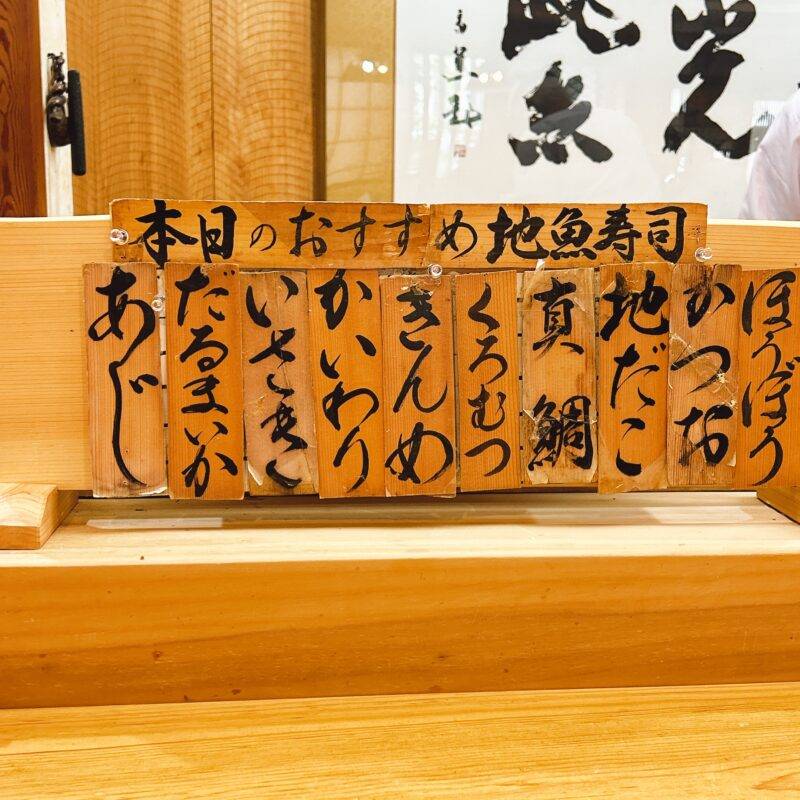 本日のおすすめ地魚寿司
ほうぼう
かつお
地だこ
真鯛
くろむつ
きんめ
かいわり
いさき
だるまいか
あじ